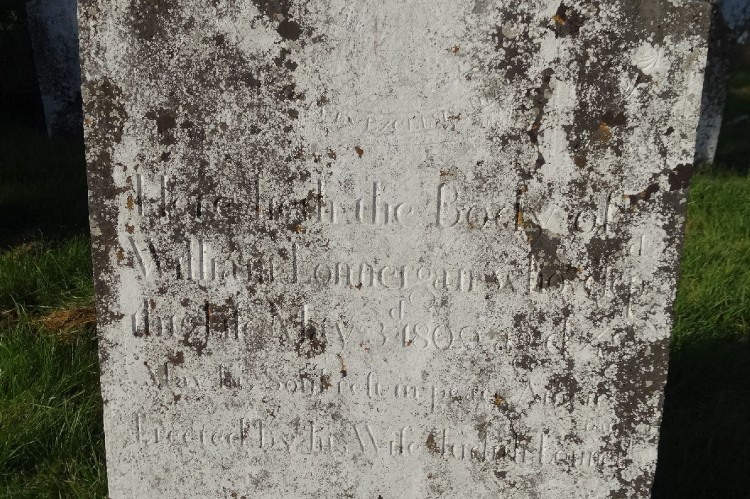 Here lieth the Body of
William Lonnergan who dep
this life May 3d 1809
May his Soul rest in peace Amen
Erected by his Wife Judith Lonner